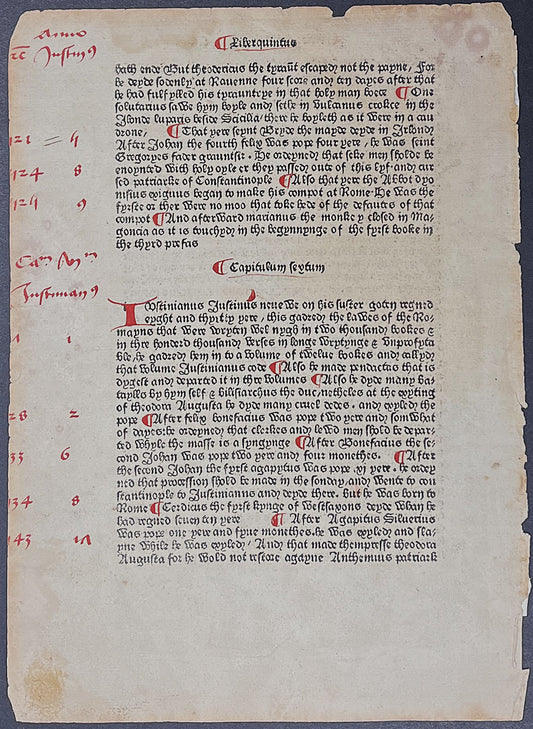 Anno
Justinꝯ
¶ Liber quintus
hath ende But theodericus the tyrañt escaped not the payne, For
he deyde sodenly at Rauenne four score and ten dayes after that
he had fulfylled his tyrauntrye in that holy man boece ¶ One
solutarius sawe hym boyle and sethe in vulcanus crokce in the
Ilonde luparis beside Scicilia there he boyleth as it were in a cau
drone, ¶ That yere seynt Bryde the mayde deyde in Irlond
After Johan the fourth felix was pope four yere, he was seint
Gregoryes fader grauntsir. He ordeyned that seke men sholde be
enoynted with holy oyle er they passed oute of this lyf and cur
sed patriarke of Constantinople ¶ Also that yere the Abbot dyo
nisius exiguus began to make his compot at Rome He was the
fyrste or ther were no moo that toke hede of the defautes of that
compot ¶ And afterward marianus the monke y closed in Ma
goncia as it is touchyd in the begynnynge of the fyrst booke in
the thyrd prefas
121 4
124 8
125 9
¶ Capitulum sextum
Justinianꝯ
Iustinianus Justinus neuewe on his suster goten regned
eyght and thyrtty yere, this gadred the lawes of the Ro-
mayns that were wryten wel nygh in two thousand bookes &
in thre honderd thousand verses in longe wrytynge & vnprofyta
ble, he gadred hem in to a volume of twelue bookes and callyd
that volume Justinianus code ¶ Also he made pendactes that is
dygest and departed it in thre volumes ¶ Also he dyde many ba
taylls by hym self & bilisarchus the duc, netheles at the exyting
of theodora Augusta he dyde many cruel dedes. and exyled the
pope ¶ After felix bonefacius was pope two yere and somwhat
of dayes. he ordeyned that clerkes and lewd men shold be depar-
ted whyle the masse is a syngynge ¶ After Bonefacius the se-
cond Johan was pope two yere and four monethes. ¶ After
the second Johan the fyrst agapytus was pope xj yere. he ordey
ned that procession shold be made in the sonday, and wente to con
stantinople to Justinianus and deyde there. but he was born to
Rome ¶ Cerdicus the fyrst kynge of westsaxons deyde whan he
had regned seuenten yere ¶ After Agapitus Siluerius
was pope one yere and fyue monethes. he was exyled and sla-
yne while he was exyled, And that made themprese theodora
Augusta for he wold not restore agayne Anthemius patriark
1 1
28 2
33 6
34 8
43 17